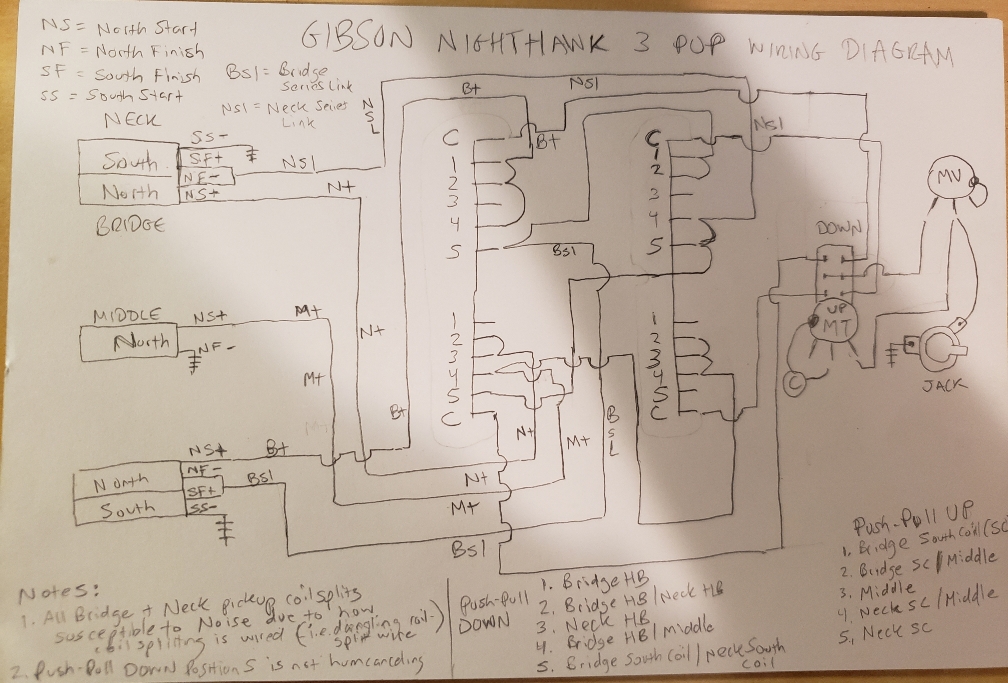 GIBSON NIGHTHAWK 3 PUP WIRING DIAGRAM
NS = North Start
NF = North Finish
SF = South Finish
SS = South Start
BSl = Bridge
Series Link
NSl = Neck Series
Link
NECK
South
North
SS-
SF+
NF-
NS+
NSl
N+
BRIDGE
MIDDLE
North
NS+
NF-
M+
M+
M+
North
South
NS+
NF-
SF+
SS-
B+
BSl
NSL
N+
B+
B+
B+
NSl
NSl
BSl
C
1
2
3
4
5
1
2
3
4
5
C
C
1
2
3
4
5
1
2
3
4
5
C
N+
M+
BSL
N+
M+
BSl
DOWN
UP
MT
MV
C
JACK
Notes:
1. All Bridge + Neck pickup coil splits
susceptible to Noise due to how
coil splitting is wired (i.e. dangling rail-)
split wire
2. Push-Pull Down Position 5 is not humcanceling
Push-Pull
DOWN
1. Bridge HB
2. Bridge HB/Neck HB
3. Neck HB
4. Bridge HB/Middle
5. Bridge South Coil/Neck South
Coil
Push-Pull UP
1. Bridge South Coil (SC
2. Bridge SC/Middle
3. Middle
4. Neck SC/Middle
5. Neck SC